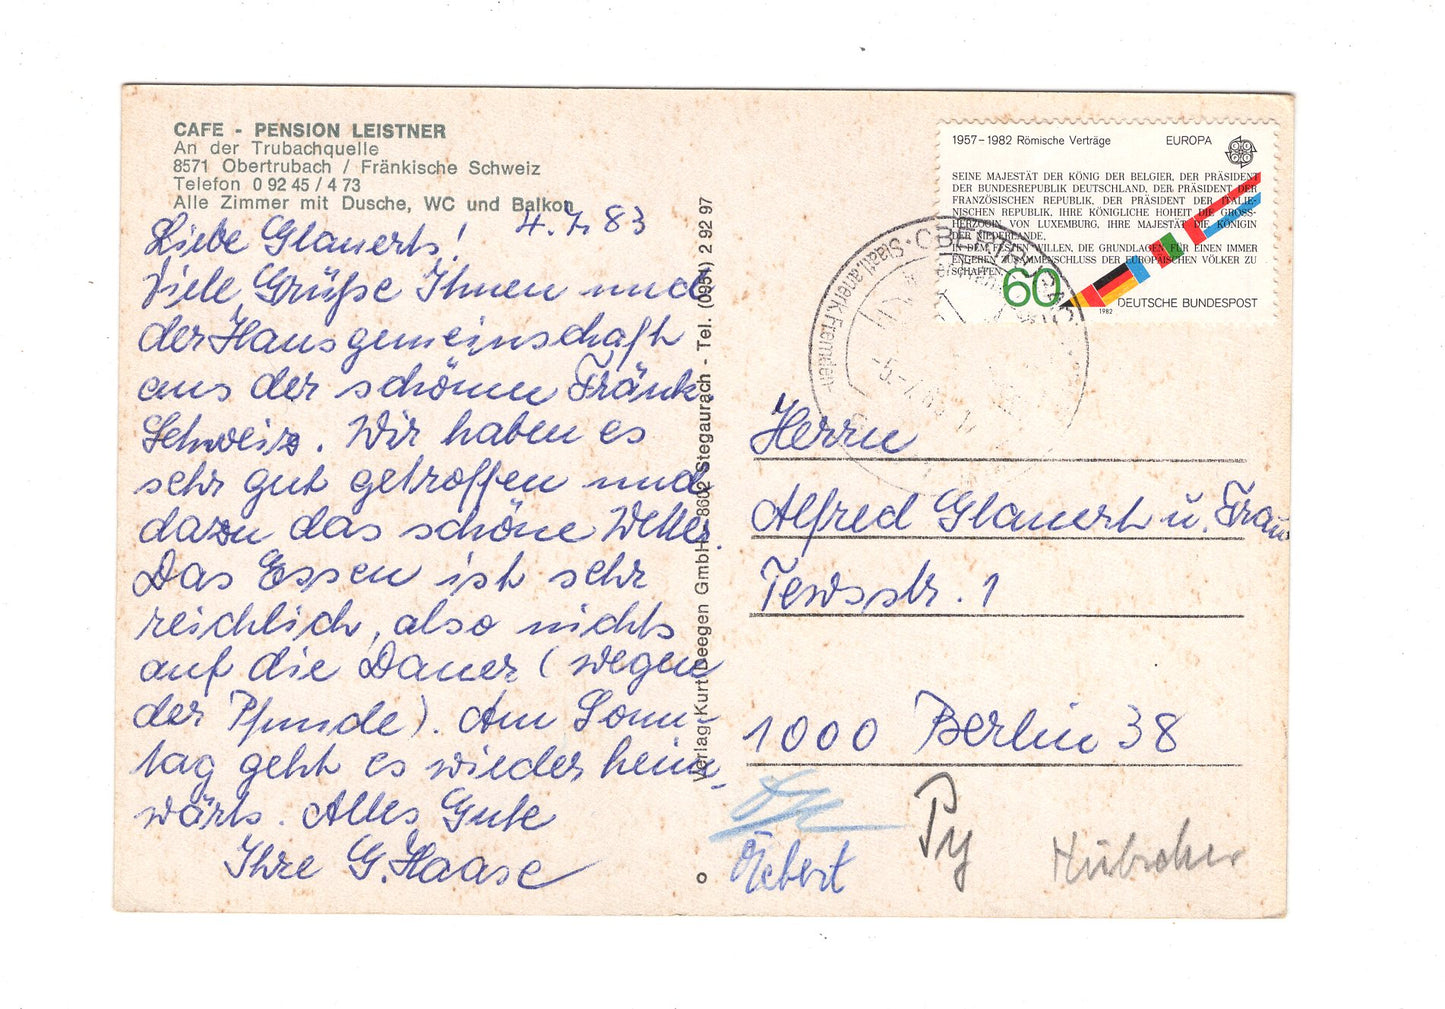 CAFE - PENSION LEISTNER
An der Trubachquelle
8571 Obertrubach / Fränkische Schweiz
Telefon 0 92 45 / 4 73
Alle Zimmer mit Dusche, WC und Balkon
4.7.83
Liebe Glauerts!
Viele Grüße Ihnen und
der Hausgemeinschaft
aus der schönen Fränk.
Schweiz. Wir haben es
sehr gut getroffen und
dazu das schöne Wetter.
Das Essen ist sehr
reichlich, also nichts
auf die Dauer (wegen
der Pfunde). Am Sonn-
tag geht es wieder heim-
wärts. Alles Gute
Ihre G. Haase
Verlag Kurt Deegen GmbH - 8602 Stegaurach - Tel. (0951) 2 92 97
1957-1982 Römische Verträge EUROPA
SEINE MAJESTÄT DER KÖNIG DER BELGIER, DER PRÄSIDENT
DER BUNDESREPUBLIK DEUTSCHLAND, DER PRÄSIDENT DER
FRANZÖSISCHEN REPUBLIK, DER PRÄSIDENT DER ITALIE-
NISCHEN REPUBLIK, IHRE KÖNIGLICHE HOHEIT DIE GROSS-
HERZOGIN VON LUXEMBURG, IHRE MAJESTÄT DIE KÖNIGIN
DER NIEDERLANDE,
IN DEM FESTEN WILLEN, DIE GRUNDLAGEN FÜR EINEN IMMER
ENGEREN ZUSAMMENSCHLUSS DER EUROPÄISCHEN VÖLKER ZU
SCHAFFEN,
60
DEUTSCHE BUNDESPOST
1982
Staatl. anerk. Fremden-
Herrn
Alfred Glauert u. Frau
Tewsstr. 1
1000 Berlin 38
Py
Hübscher